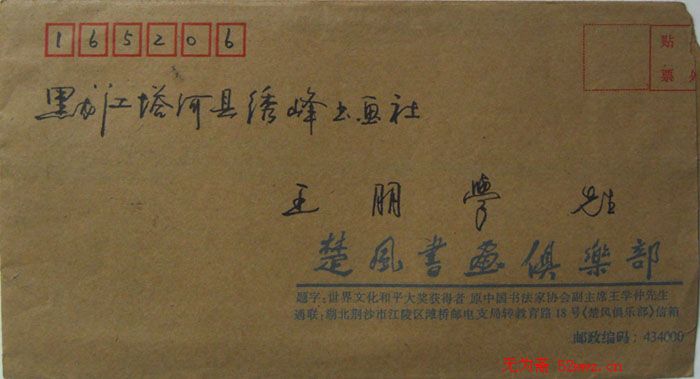 165206
贴
票
黑龙江塔河县绣峰书画社
王朋学 先生
楚风书画俱乐部
题字:世界文化和平大奖获得者 原中国书法家协会副主席王学仲先生
通联:湖北荆沙市江陵区滩桥邮电支局转教育路18号《楚风俱乐部》信箱
邮政编码:434000
无为斋 52wwz.cn